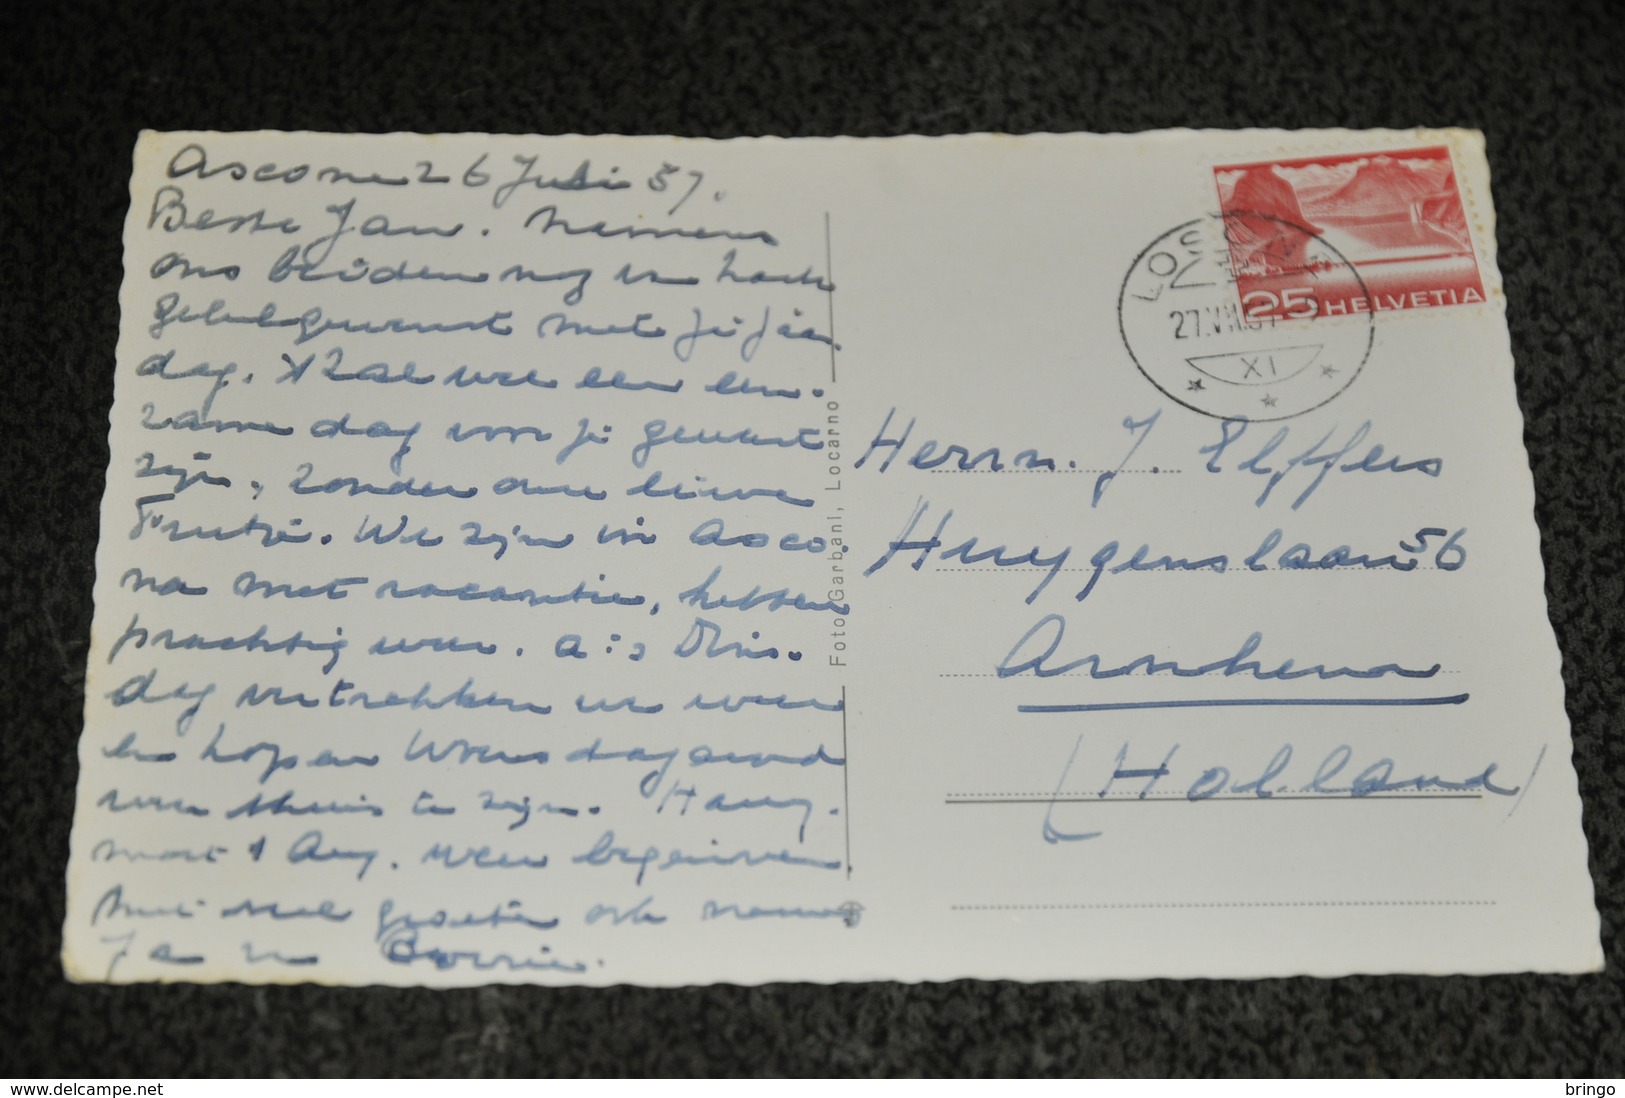 Ascona 26 Juli 57.
Beste Jan. Namens
ons beiden nog van harte
gelukgewenst met je jaar
dag. Zal wel een een-
zame dag voor je geweest
zijn, zonder onze lieve
Trutzi. We zijn in Asco-
na met vacantie, hebben
prachtig weer. A:s Dins-
dag vertrekken we weer
en hopen Woensdagavond
weer thuis te zijn.
1 Aug. weer beginnen
met veel groeten ook namens
Corrie.
Foto Garbani, Locarno
25 HELVETIA
LOSONE
27.VII.57
XI
Herrn. J. Elffers
Huygenslaan 56
Arnhem
(Holland)
delcampe.net
bringo